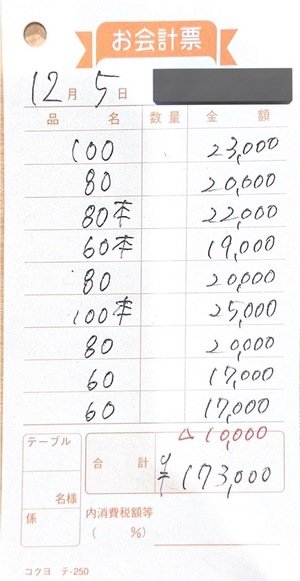 お会計票
12月5日
品名 数量 金額
100 23,000
80 20,000
80本 22,000
60本 19,000
80 20,000
100本 25,000
80 20,000
60 17,000
60 17,000
△10,000
テーブル
名様
係
合計 ¥173,000
内消費税額等
( %)
コクヨ テ-250